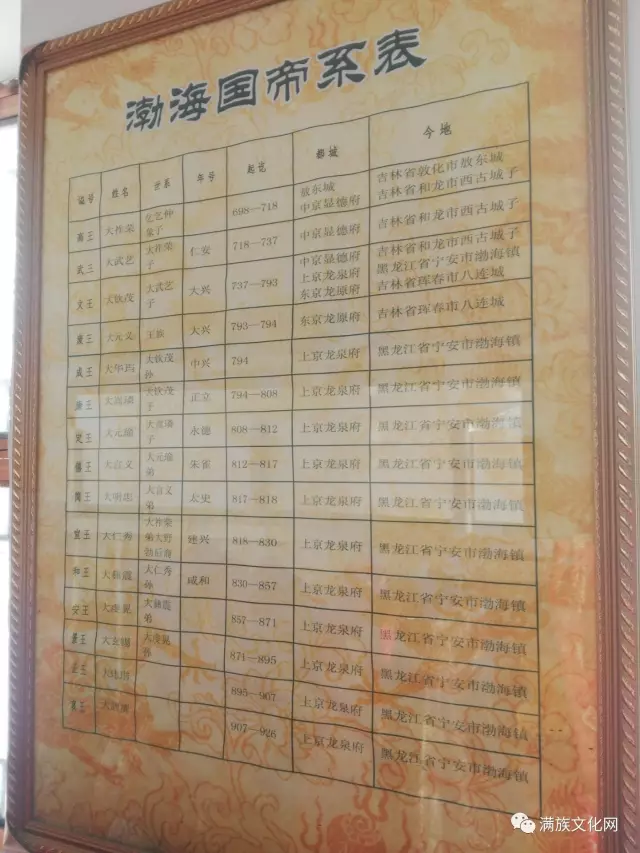 渤海国帝系表
谥号 姓名 世系 年号 起讫 都城 今地
高王 大祚荣 乞乞仲象子 698—718 敖东城 中京显德府 吉林省敦化市敖东城 吉林省和龙市西古城子
武王 大武艺 大祚荣子 仁安 718—737 中京显德府 吉林省和龙市西古城子
文王 大钦茂 大武艺子 大兴 737—793 中京显德府 上京龙泉府 东京龙原府 吉林省和龙市西古城子 黑龙江省宁安市渤海镇 吉林省珲春市八连城
大元义 王族 大兴 793—794 东京龙原府 吉林省珲春市八连城
成王 大华玙 大钦茂孙 中兴 794 上京龙泉府 黑龙江省宁安市渤海镇
康王 大嵩璘 大钦茂子 正立 794—808 上京龙泉府 黑龙江省宁安市渤海镇
定王 大元瑜 大嵩璘子 永德 808—812 上京龙泉府 黑龙江省宁安市渤海镇
僖王 大言义 大元瑜弟 朱雀 812—817 上京龙泉府 黑龙江省宁安市渤海镇
简王 大明忠 大言义弟 太史 817—818 上京龙泉府 黑龙江省宁安市渤海镇
宣王 大仁秀 大祚荣弟大野勃后裔 建兴 818—830 上京龙泉府 黑龙江省宁安市渤海镇
和王 大彝震 大仁秀孙 咸和 830—857 上京龙泉府 黑龙江省宁安市渤海镇
安王 大虔晃 大彝震弟 857—871 上京龙泉府 黑龙江省宁安市渤海镇
景王 大玄锡 大虔晃孙 871—895 上京龙泉府 黑龙江省宁安市渤海镇
895—907 上京龙泉府 黑龙江省宁安市渤海镇
907—926 上京龙泉府 黑龙江省宁安市渤海镇
满族文化网